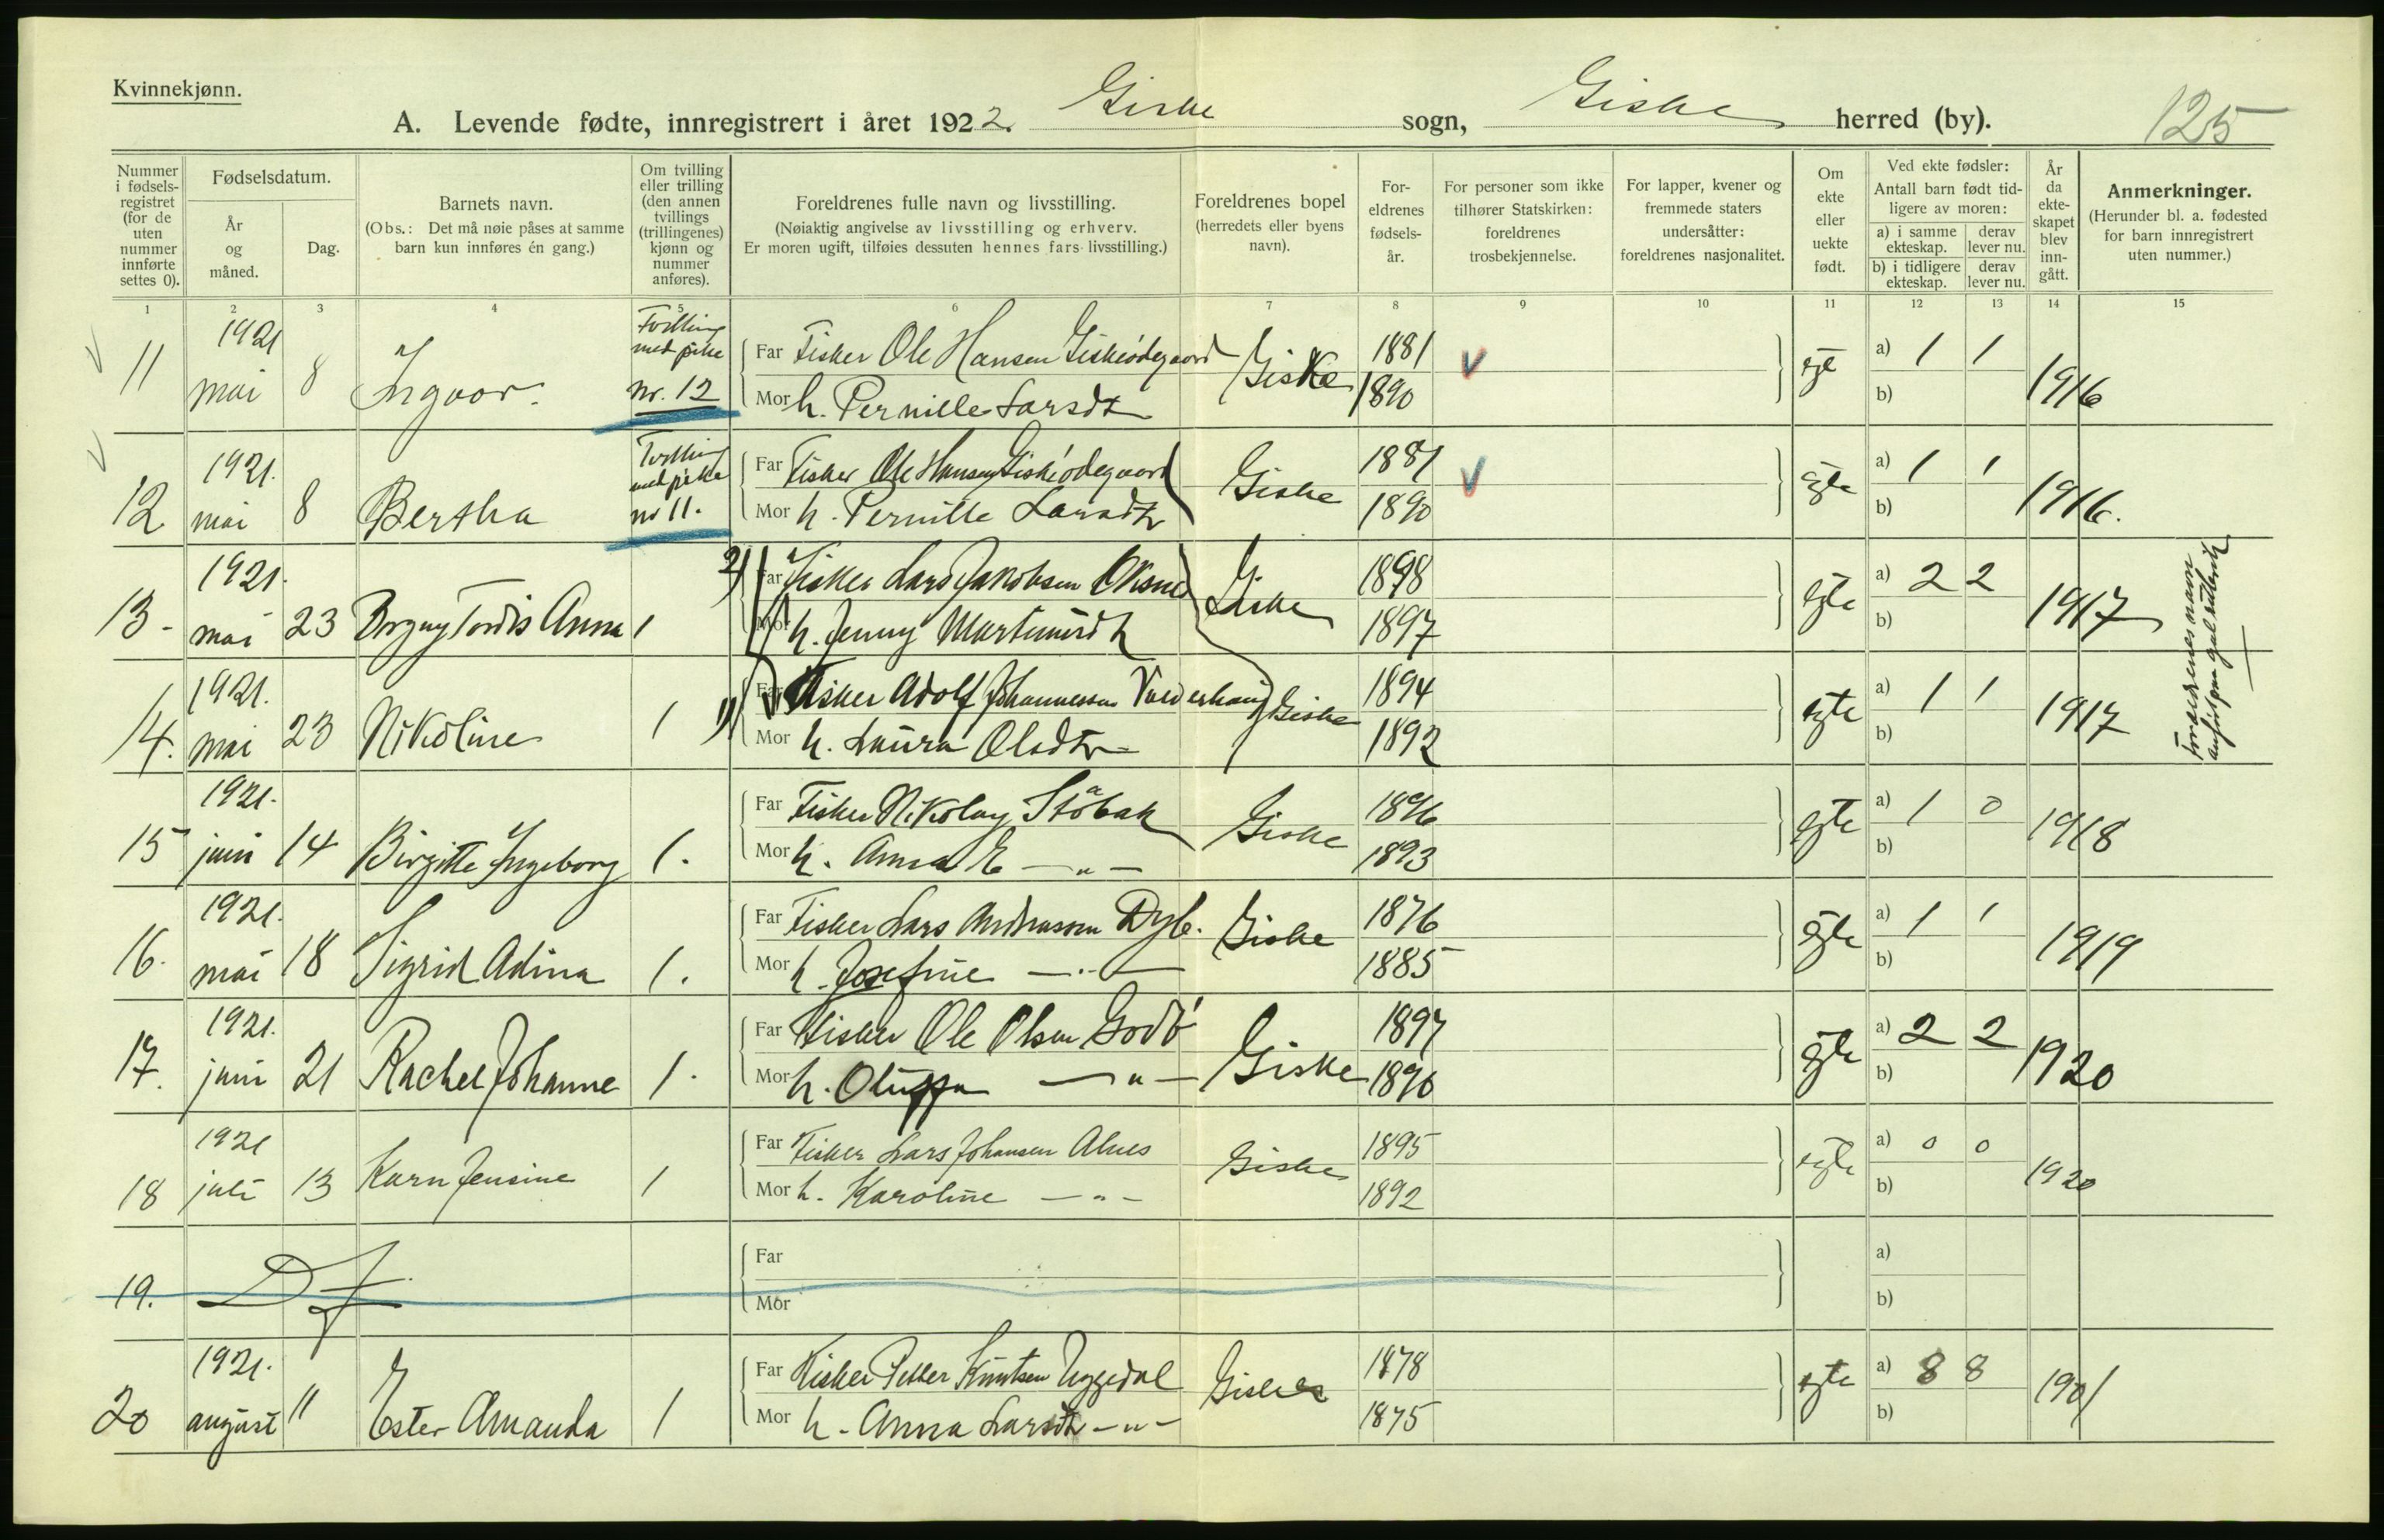 Kvinnekjønn.
A. Levende fødte, innregistrert i året 1922. Giske sogn, Giske herred (by). 125
Nummer i fødsels-registret (for de uten nummer innførte settes 0).
Fødselsdatum.
År og måned.
Dag.
Barnets navn.
(Obs.: Det må nøie påses at samme barn kun innføres én gang.)
Om tvilling eller trilling (den annen tvillings (trillingenes) kjønn og nummer anføres).
Foreldrenes fulle navn og livsstilling.
(Nøiaktig angivelse av livsstilling og erhverv.
Er moren ugift, tilføies dessuten hennes fars livsstilling.)
Foreldrenes bopel (herredets eller byens navn).
For-eldrenes fødsels-år.
For personer som ikke tilhører Statskirken: foreldrenes trosbekjennelse.
For lapper, kvener og fremmede staters undersåtter: foreldrenes nasjonalitet.
Om ekte eller uekte født.
Ved ekte fødsler:
Antall barn født tid-ligere av moren:
a) i samme ekteskap. derav lever nu.
b) i tidligere ekteskap. derav lever nu.
År da ekte-skapet blev inn-gått.
Anmerkninger.
(Herunder bl. a. fødested for barn innregistrert uten nummer.)
1 2 3 4 5 6 7 8 9 10 11 12 13 14 15
11 1921 mai 8 Ingvor. Tvilling med pike nr. 12
Far Fisker Ole Hansen Giskeødegaard Giske 1881 egte a) 1 1 1916
Mor h. Pernille Larsdt 1890 b)
12 1921. mai 8 Bertha Tvilling med pike nr 11.
Far Fisker Ole Hansen Giskeødegaard Giske 1881 egte a) 1 1 1916.
Mor h. Pernille Larsdtr 1890 b)
13 - 1921. mai 23 Borgny Tordis Anna 1
2) Far Fisker Lars Jakobsen Oksnes Giske 1898 egte a) 2 2 1917
Mor h. Jenny Martinusdt 1897 b)
14. 1921. mai 23 Nikoline 1
1) Far Fisker Adolf Johannessen Valderhaug Giske 1894 egte a) 1 1 1917
Mor h. Laura Olsdtr 1892 b)
Forældrenes navn
15 1921. juni 14 Birgitte Ingeborg 1.
Far Fisker Nikolay Støbak Giske 1896 egte a) 1 0 1918
Mor h. Anna E — " — 1893 b)
16. 1921. mai 18 Sigrid Adina 1.
Far Fisker Lars Andreassen Dyb. Giske 1876 egte a) 1 1 1919
Mor h. Josefine — " — 1885 b)
17. 1921. juni 21 Rachel Johanne 1.
Far Fisker Ole Olsen Godø Giske 1897 egte a) 2 2 1920
Mor h. Oluffa — " — 1896 b)
18 1921 juli 13 Karn Jensine 1
Far Fisker Lars Johansen Alnes Giske 1895 egte a) 0 0 1920
Mor h. Karoline — " — 1892 b)
19. Df
Far a)
Mor b)
20 1921. august 11 Ester Amanda 1
Far Fisker Petter Knutsen Uggedal Giske 1878 egte a) 8 8 1901
Mor h. Anna Larsdtr — " — 1875 b)